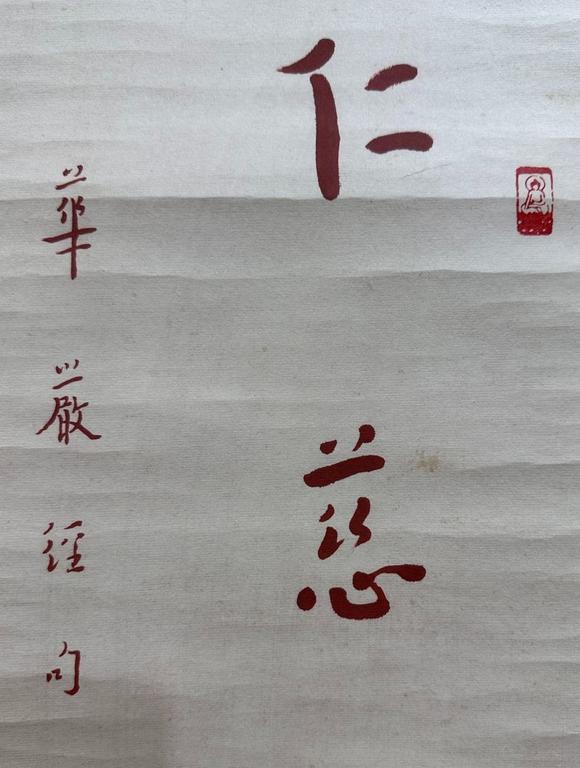 仁慈
華嚴經句